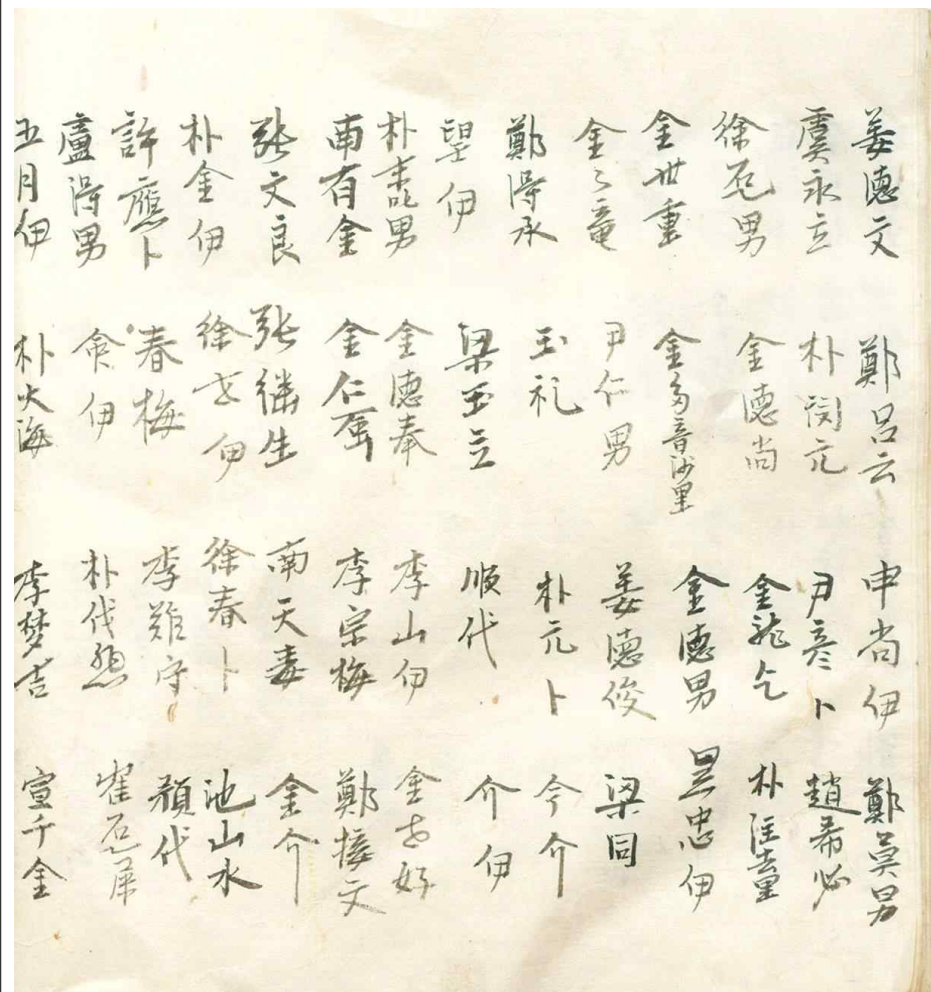 姜德文 鄭呂云 申尚伊 鄭莫男
虞永立 朴閏元 尹彦卜 趙希必
徐男 金德尚 金龍乞 朴
金世重 金多音沙里 金德男 忠伊
金〻竜 尹仁男 姜德俊 梁同
鄭得承 玉礼 朴元卜 今介
伊 梁玉立 順代 介伊
朴男 金德奉 李山伊 金好
南有金 金仁 李宗梅 鄭接文
張文良 張継生 南天毒 金介
朴金伊 徐伊 徐春卜 池山水
許應卜 春梅 李難守 代
盧得男 伊 朴伐 崔
五月伊 朴大海 李梦吉 宣千金